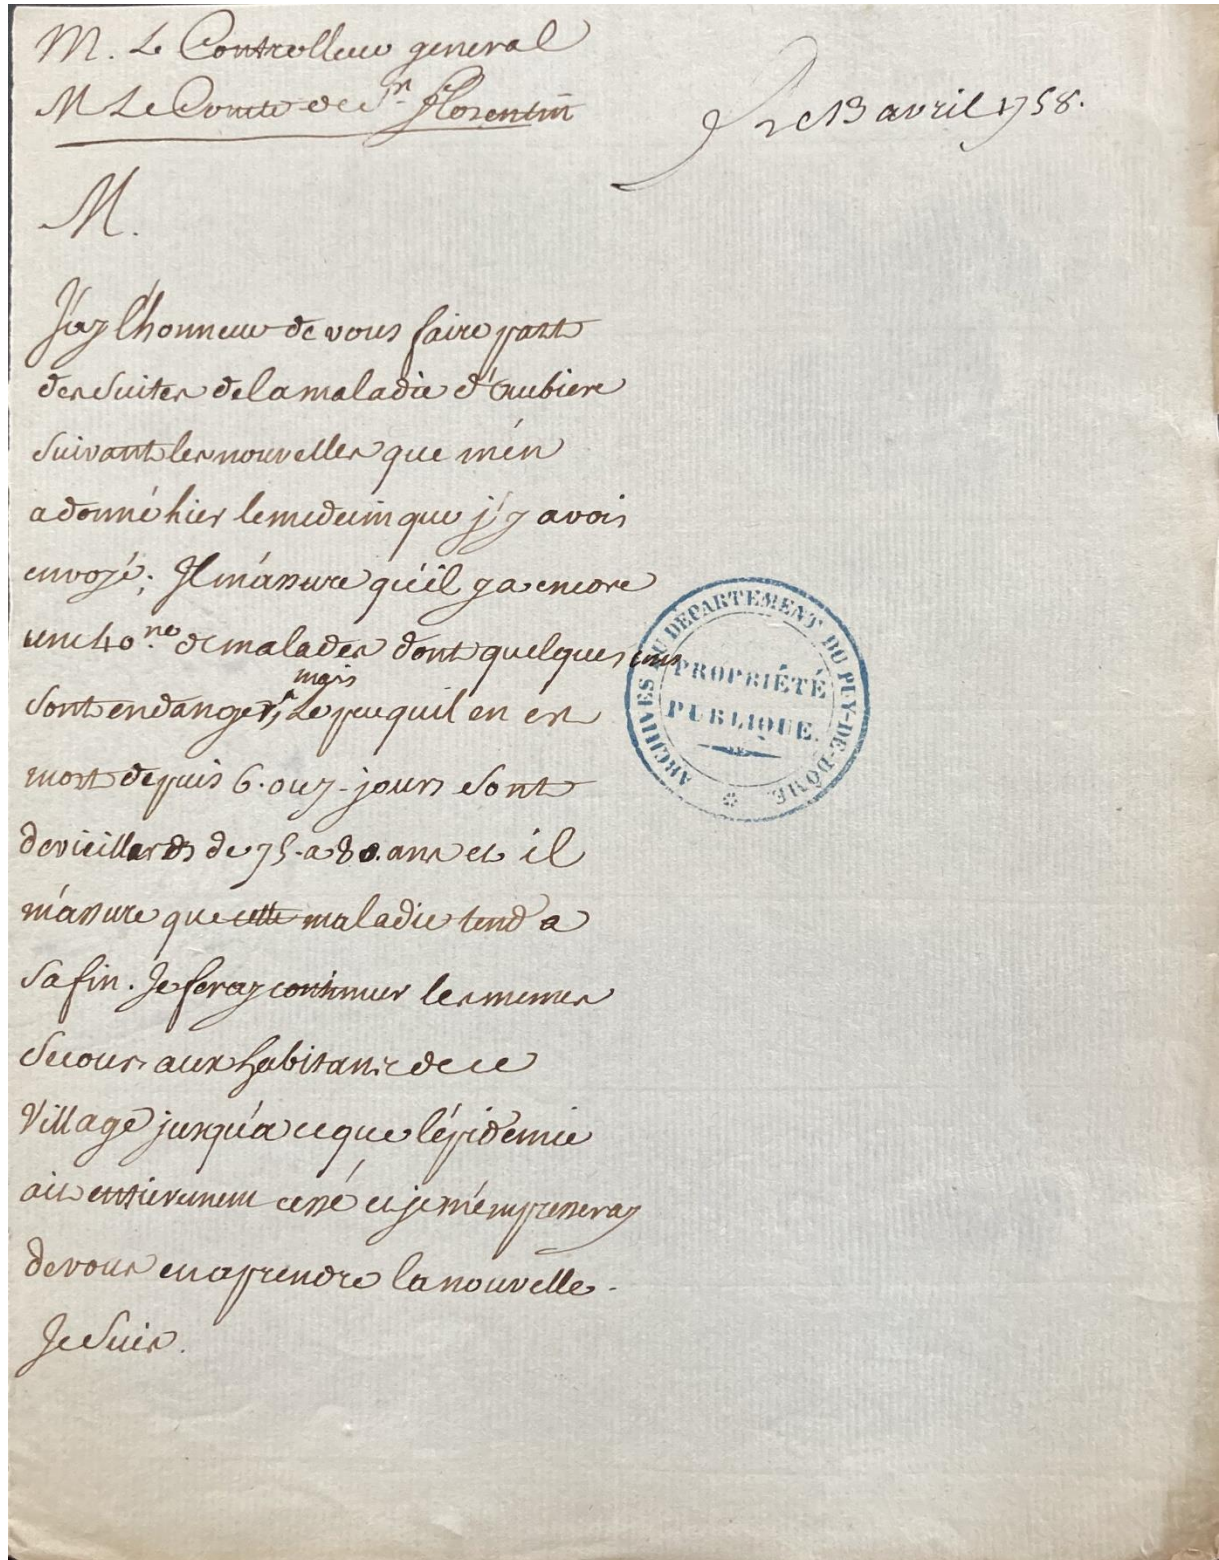 M. Le Controlleur general
M Le Comte de St. Florentin
Le 13 avril 1758.
M.
J'ay l'honneur de vous faire part
des suites de la maladie d'Aubiere
suivant les nouvelles que m'en
a donné hier le medecin que j'y avois
envoyé; Il m'assure qu'il y a encore
une 40.ne de malades dont quelques uns
mais
sont en danger, Le peu quil en est
mort depuis 6. ou 7. jours sont
de vieillards de 75. a 80. ans et il
m'assure que cette maladie tend a
sa fin. Je feray continuer les memes
secours aux habitans de ce
village jusqu'a ce que l'épidemie
ait entierement cessé et je m'empresseray
de vous en aprendre la nouvelle.
Je suis.
ARCHIVES DU DÉPARTEMENT DU PUY-DE-DÔME
PROPRIÉTÉ
PUBLIQUE.